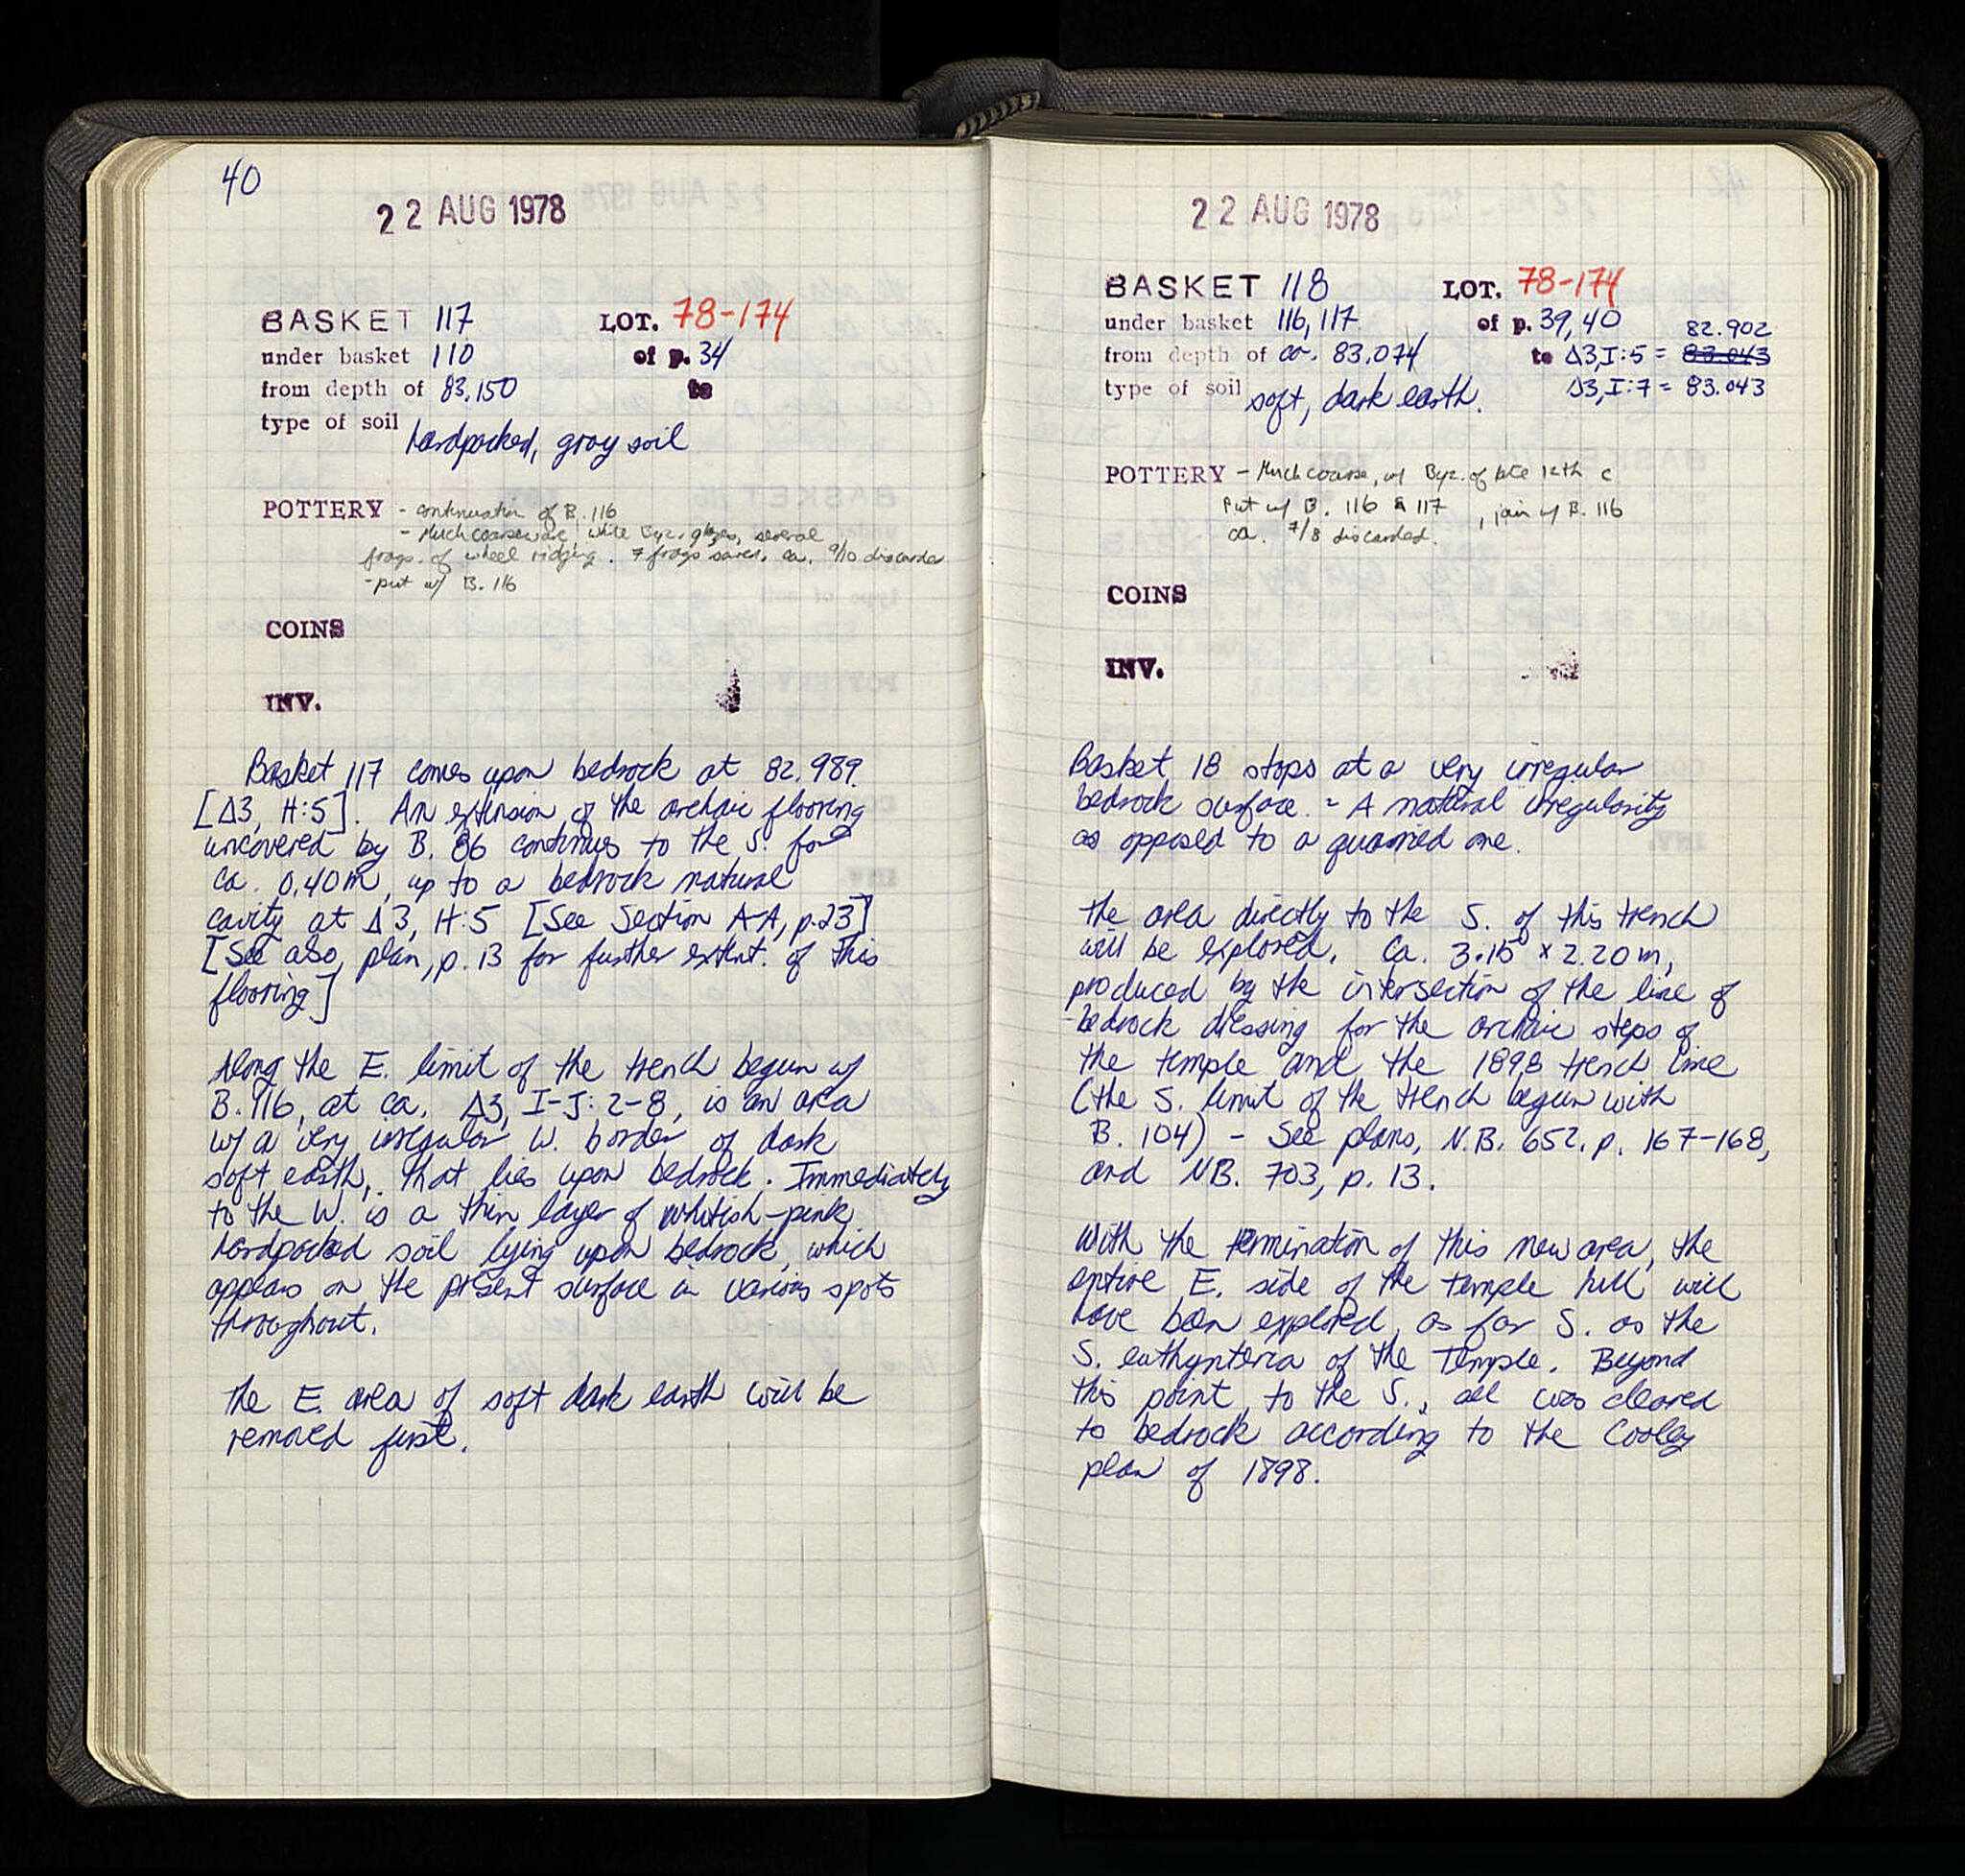 40
22 AUG 1978
BASKET 117 LOT. 78-174
under basket 110 of p. 34
from depth of 83.150 to
type of soil hardpacked, gray soil
POTTERY - continuation of B. 116
- Much coarseware, while Byz. glazes, several
frags. of wheel ridging. 7 frags saved, ca. 9/10 discarded
- put w/ B. 116
COINS
INV.
Basket 117 comes upon bedrock at 82.989.
[Δ3, H:5]. An extension of the archaic flooring
uncovered by B. 86 continues to the S. for
ca. 0.40m, up to a bedrock natural
cavity at Δ3, H:5 [See Section A-A, p.23]
[See also, plan, p. 13 for further extent. of this
flooring]
Along the E. limit of the trench begun w/
B. 116, at ca. Δ3, I-J: 2-8, is an area
w/ a very irregular W. border of dark
soft earth, that lies upon bedrock. Immediately
to the W. is a thin layer of whitish-pink
hardpacked soil lying upon bedrock, which
appears on the present surface in various spots
throughout.
The E. area of soft dark earth will be
removed first.
22 AUG 1978
BASKET 118 LOT. 78-174
under basket 116, 117 of p. 39, 40 82.902
from depth of ca. 83.074 to Δ3, I:5 = 83.043
type of soil soft, dark earth. Δ3, I:7 = 83.043
POTTERY - Much coarse, w/ Byz. of late 12th c
Put w/ B. 116 & 117, join w/ B. 116
ca. 7/8 discarded.
COINS
INV.
Basket 18 stops at a very irregular
bedrock surface. - A natural irregularity
as opposed to a quarried one.
The area directly to the S. of this trench
will be explored. Ca. 3.15 x 2.20 m,
produced by the intersection of the line of
bedrock dressing for the archaic steps of
the temple and the 1898 trench line
(the S. limit of the trench begun with
B. 104) - See plans, N.B. 652. p. 167-168,
and NB. 703, p. 13.
With the termination of this new area, the
entire E. side of the temple hill will
have been explored, as far S. as the
S. euthynteria of the Temple. Beyond
this point, to the S., all was cleared
to bedrock according to the Cooley
plan of 1898.